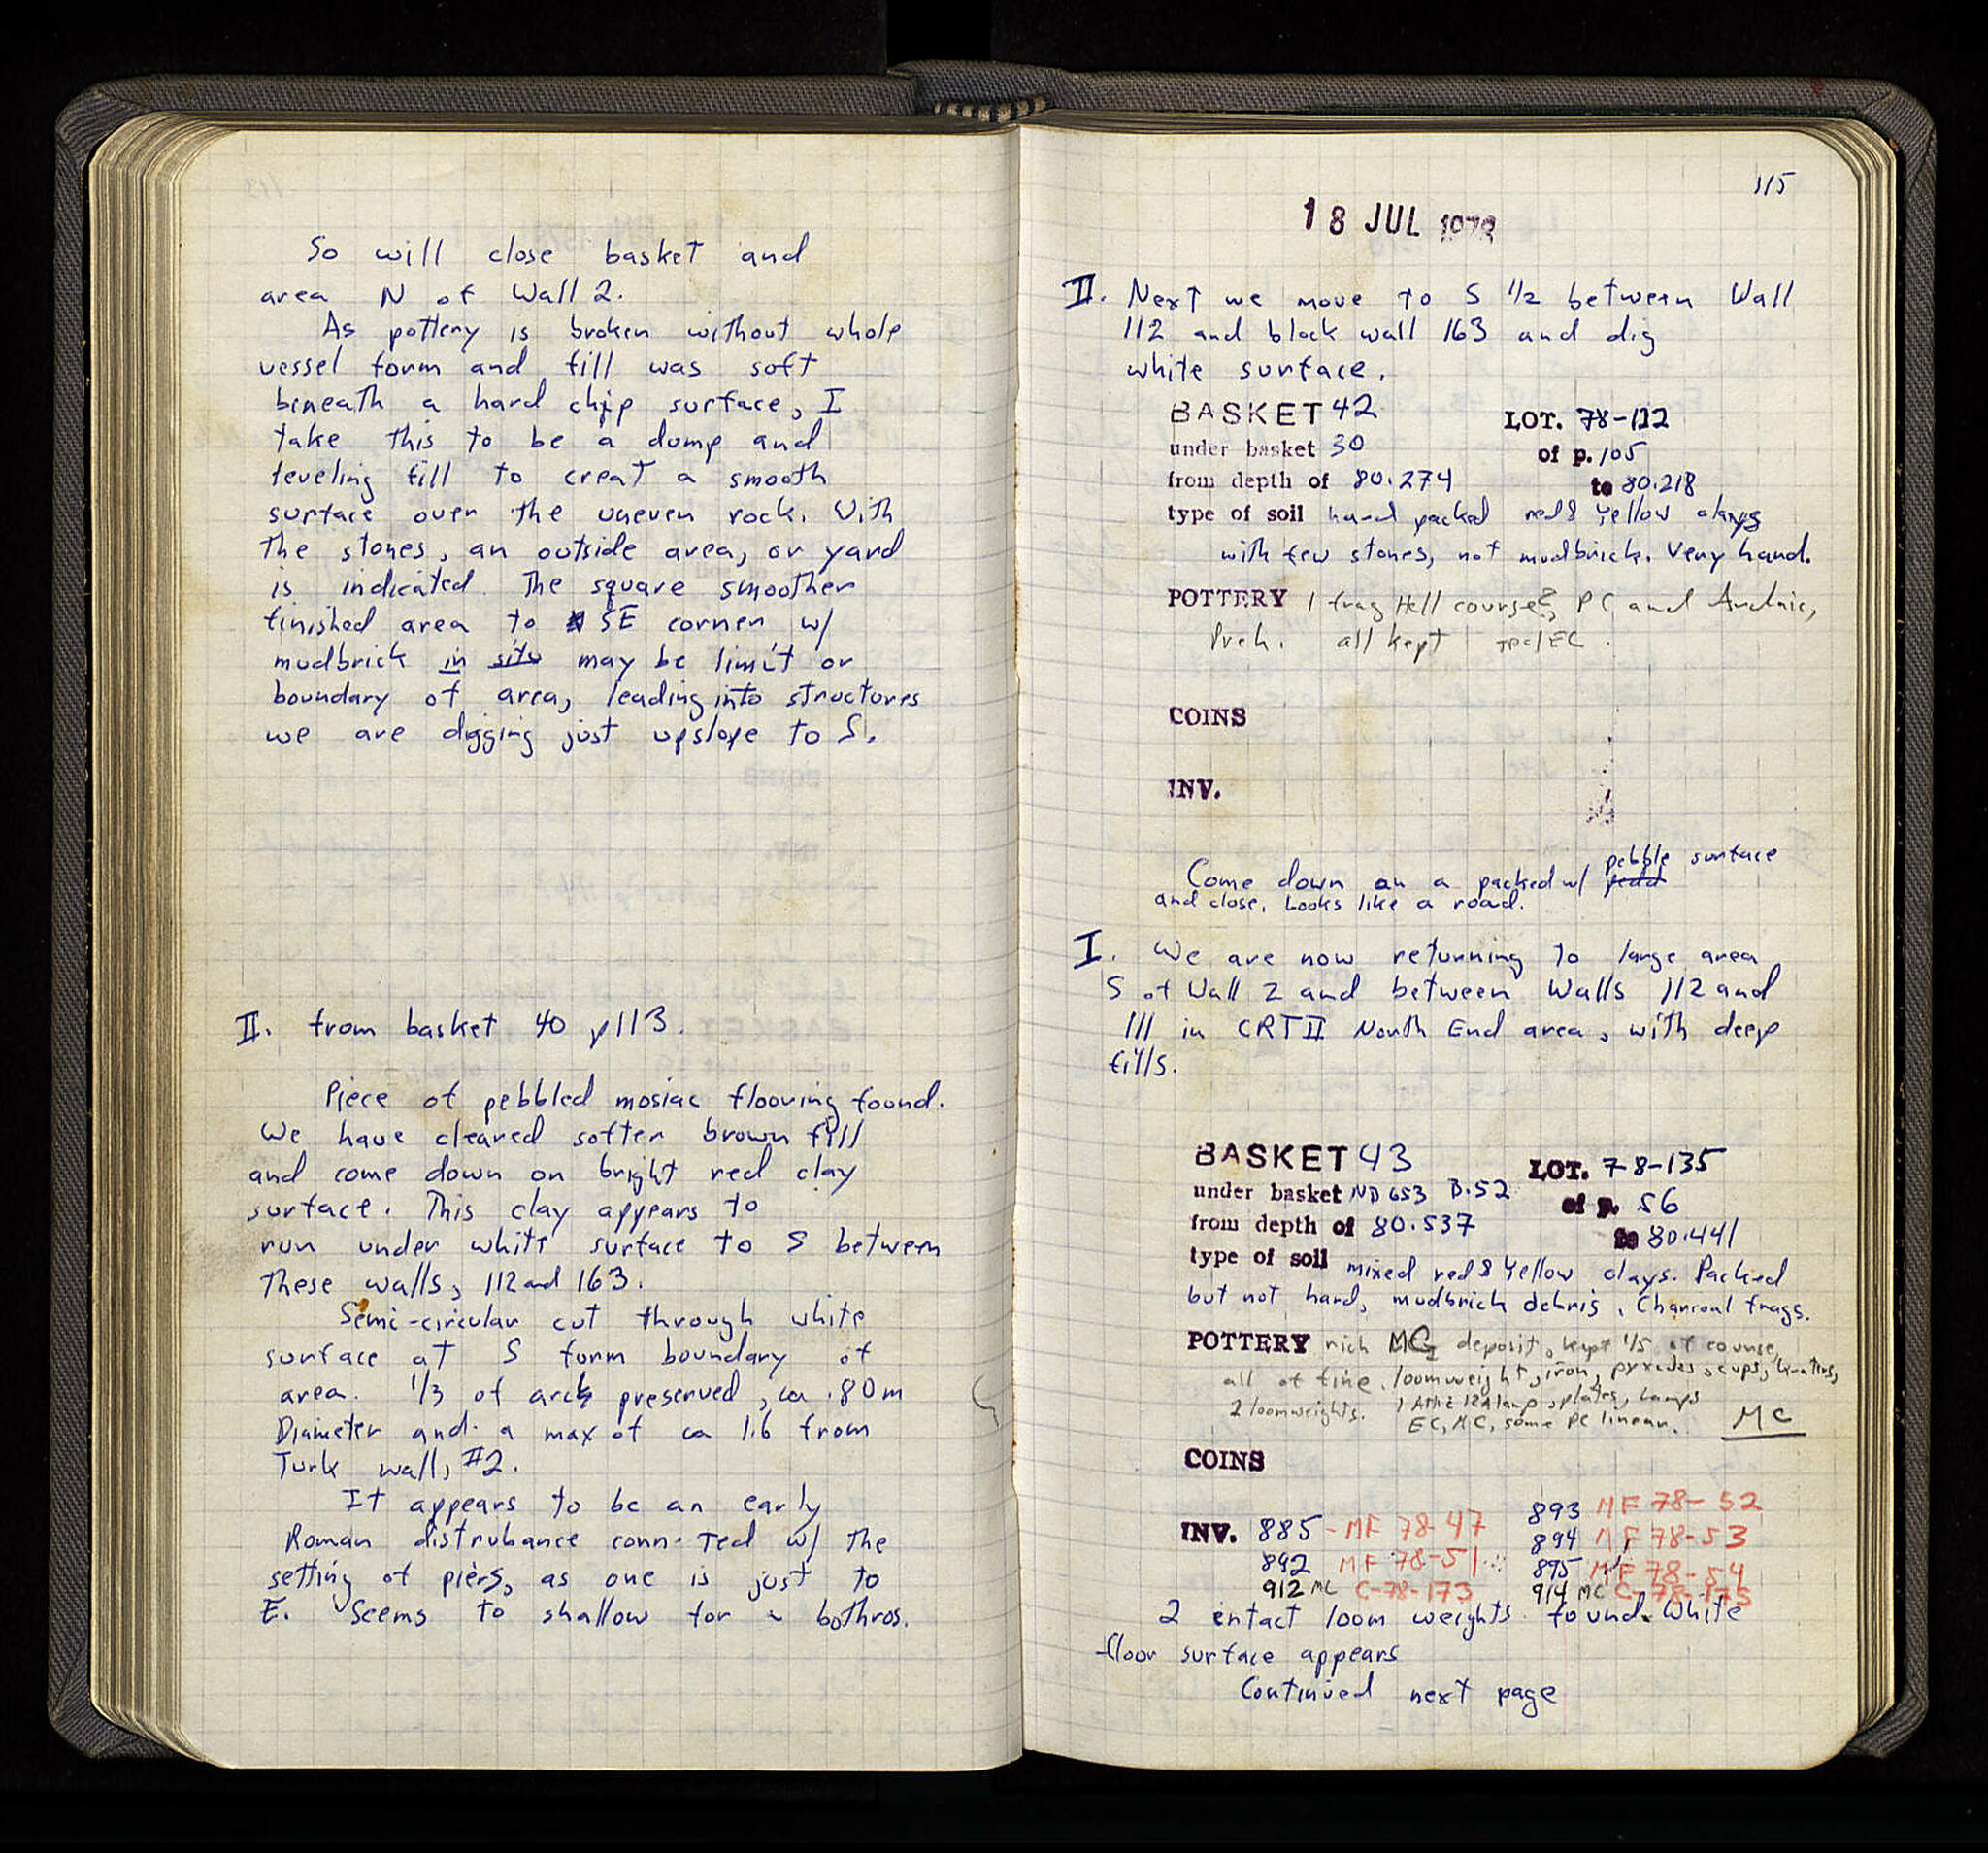 So will close basket and
area N of Wall 2.
As pottery is broken without whole
vessel form and fill was soft
beneath a hard chip surface, I
take this to be a dump and
leveling fill to creat a smooth
surface over the uneven rock. With
the stones, an outside area, or yard
is indicated. The square smoother
finished area to SE corner w/
mudbrick in situ may be limit or
boundary of area, leading into structures
we are digging just upslope to S.
II. from basket 40 p113.
Piece of pebbled mosiac flooring found.
We have cleared softer brown fill
and come down on bright red clay
surface. This clay appears to
run under white surface to S between
these walls, 112 and 163.
Semi-circular cut through white
surface at S form boundary of
area. 1/3 of arc preserved, ca .80m
Diameter and a max of ca 1.6 from
Turk wall, #2.
It appears to be an early
Roman distrubance conn.ted w/ the
setting of piers, as one is just to
E. Seems to shallow for a bothros.
115
18 JUL 1978
II. Next we move to S 1/2 between Wall
112 and block wall 163 and dig
white surface.
BASKET 42 LOT. 78-122
under basket 30 of p. 105
from depth of 80.274 to 80.218
type of soil hard packed red & yellow clays
with few stones, not mudbrick. Very hard.
POTTERY 1 frag Hell course?, PC and Archaic,
Preh. all kept TPC/EC
COINS
INV.
Come down on a packed w/ pebble surface
and close. Looks like a road.
I. We are now returning to large area
S of Wall 2 and between Walls 112 and
111 in CRT II North End area, with deep
fills.
BASKET 43 LOT. 78-135
under basket NB 653 B.52 of p. 56
from depth of 80.537 to 80.441
type of soil mixed red & yellow clays. Packed
but not hard, mudbrick debris. Charcoal frags.
POTTERY rich MC deposit, kept 1/5 of course,
all of fine, loomweight, iron, pyxides, cups, kraters,
2 loomweights. 1 Attic lamp, plates, lamps
EC, MC, some PC linear. MC
COINS
INV. 885 - MF 78-47 893 MF 78-52
894 MF 78-53
892 MF 78-51 895 MF 78-54
912 MC C-78-173 914 MC C-78-175
2 entact loom weights found. White
floor surface appears
Continued next page